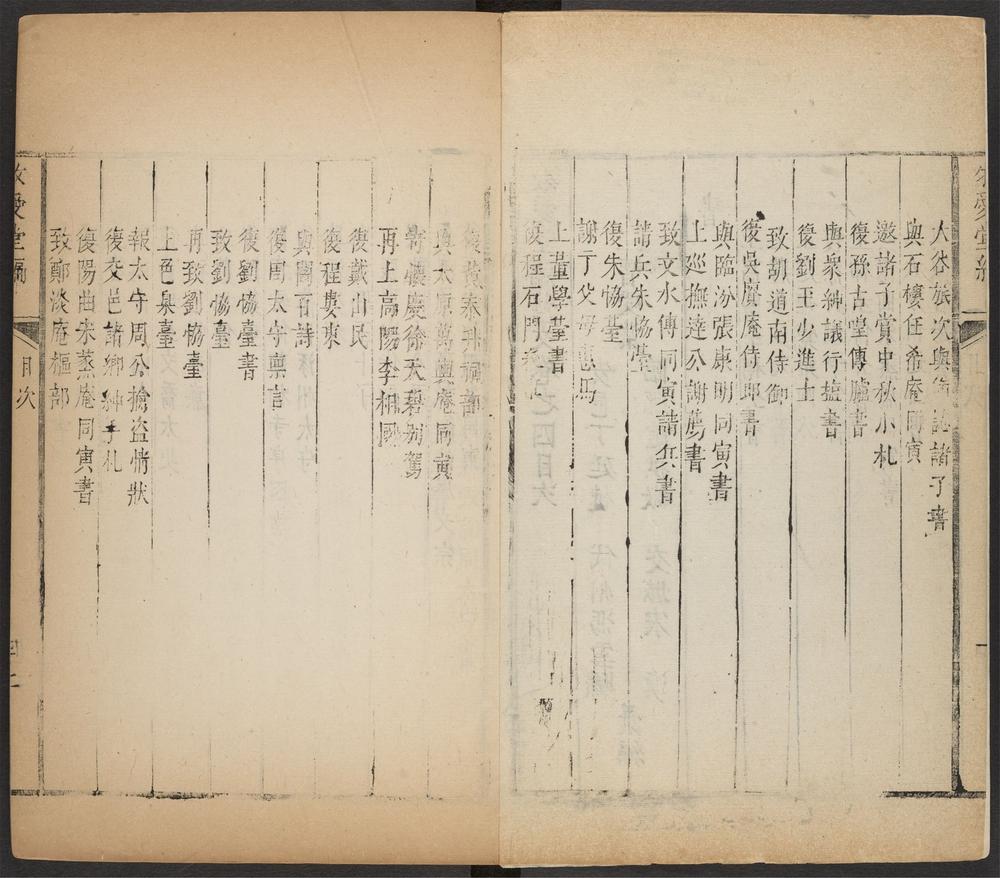 大谷旅次與衛誌諸子書
與石樓任希庵同寅
邀諸子賞中秋小札
復孫古喤傳臚書
與衆紳議行塩書
復劉王少進士
致胡道南侍御
復吳賡庵侍郎書
與臨汾張康明同寅書
上廵撫逹公謝薦書
致文水傅同寅請兵書
請兵朱協臺
復朱協臺
謝丁父母惠馬
上董學臺書
復程石門
復黃泰升祠部
與太原萬輿庵同寅
寄慶徐天碧別駕
再上高陽李相國
復戴山民
復程婁東
與閻百詩
復周太守禀言
復劉協臺書
致劉協臺
再致劉協臺
上邑臬臺
報太守周公擒盗情狀
復交邑諸鄉紳手札
復陽曲宋蒸庵同寅書
致鄭淡庵樞部
愛堂編
目次